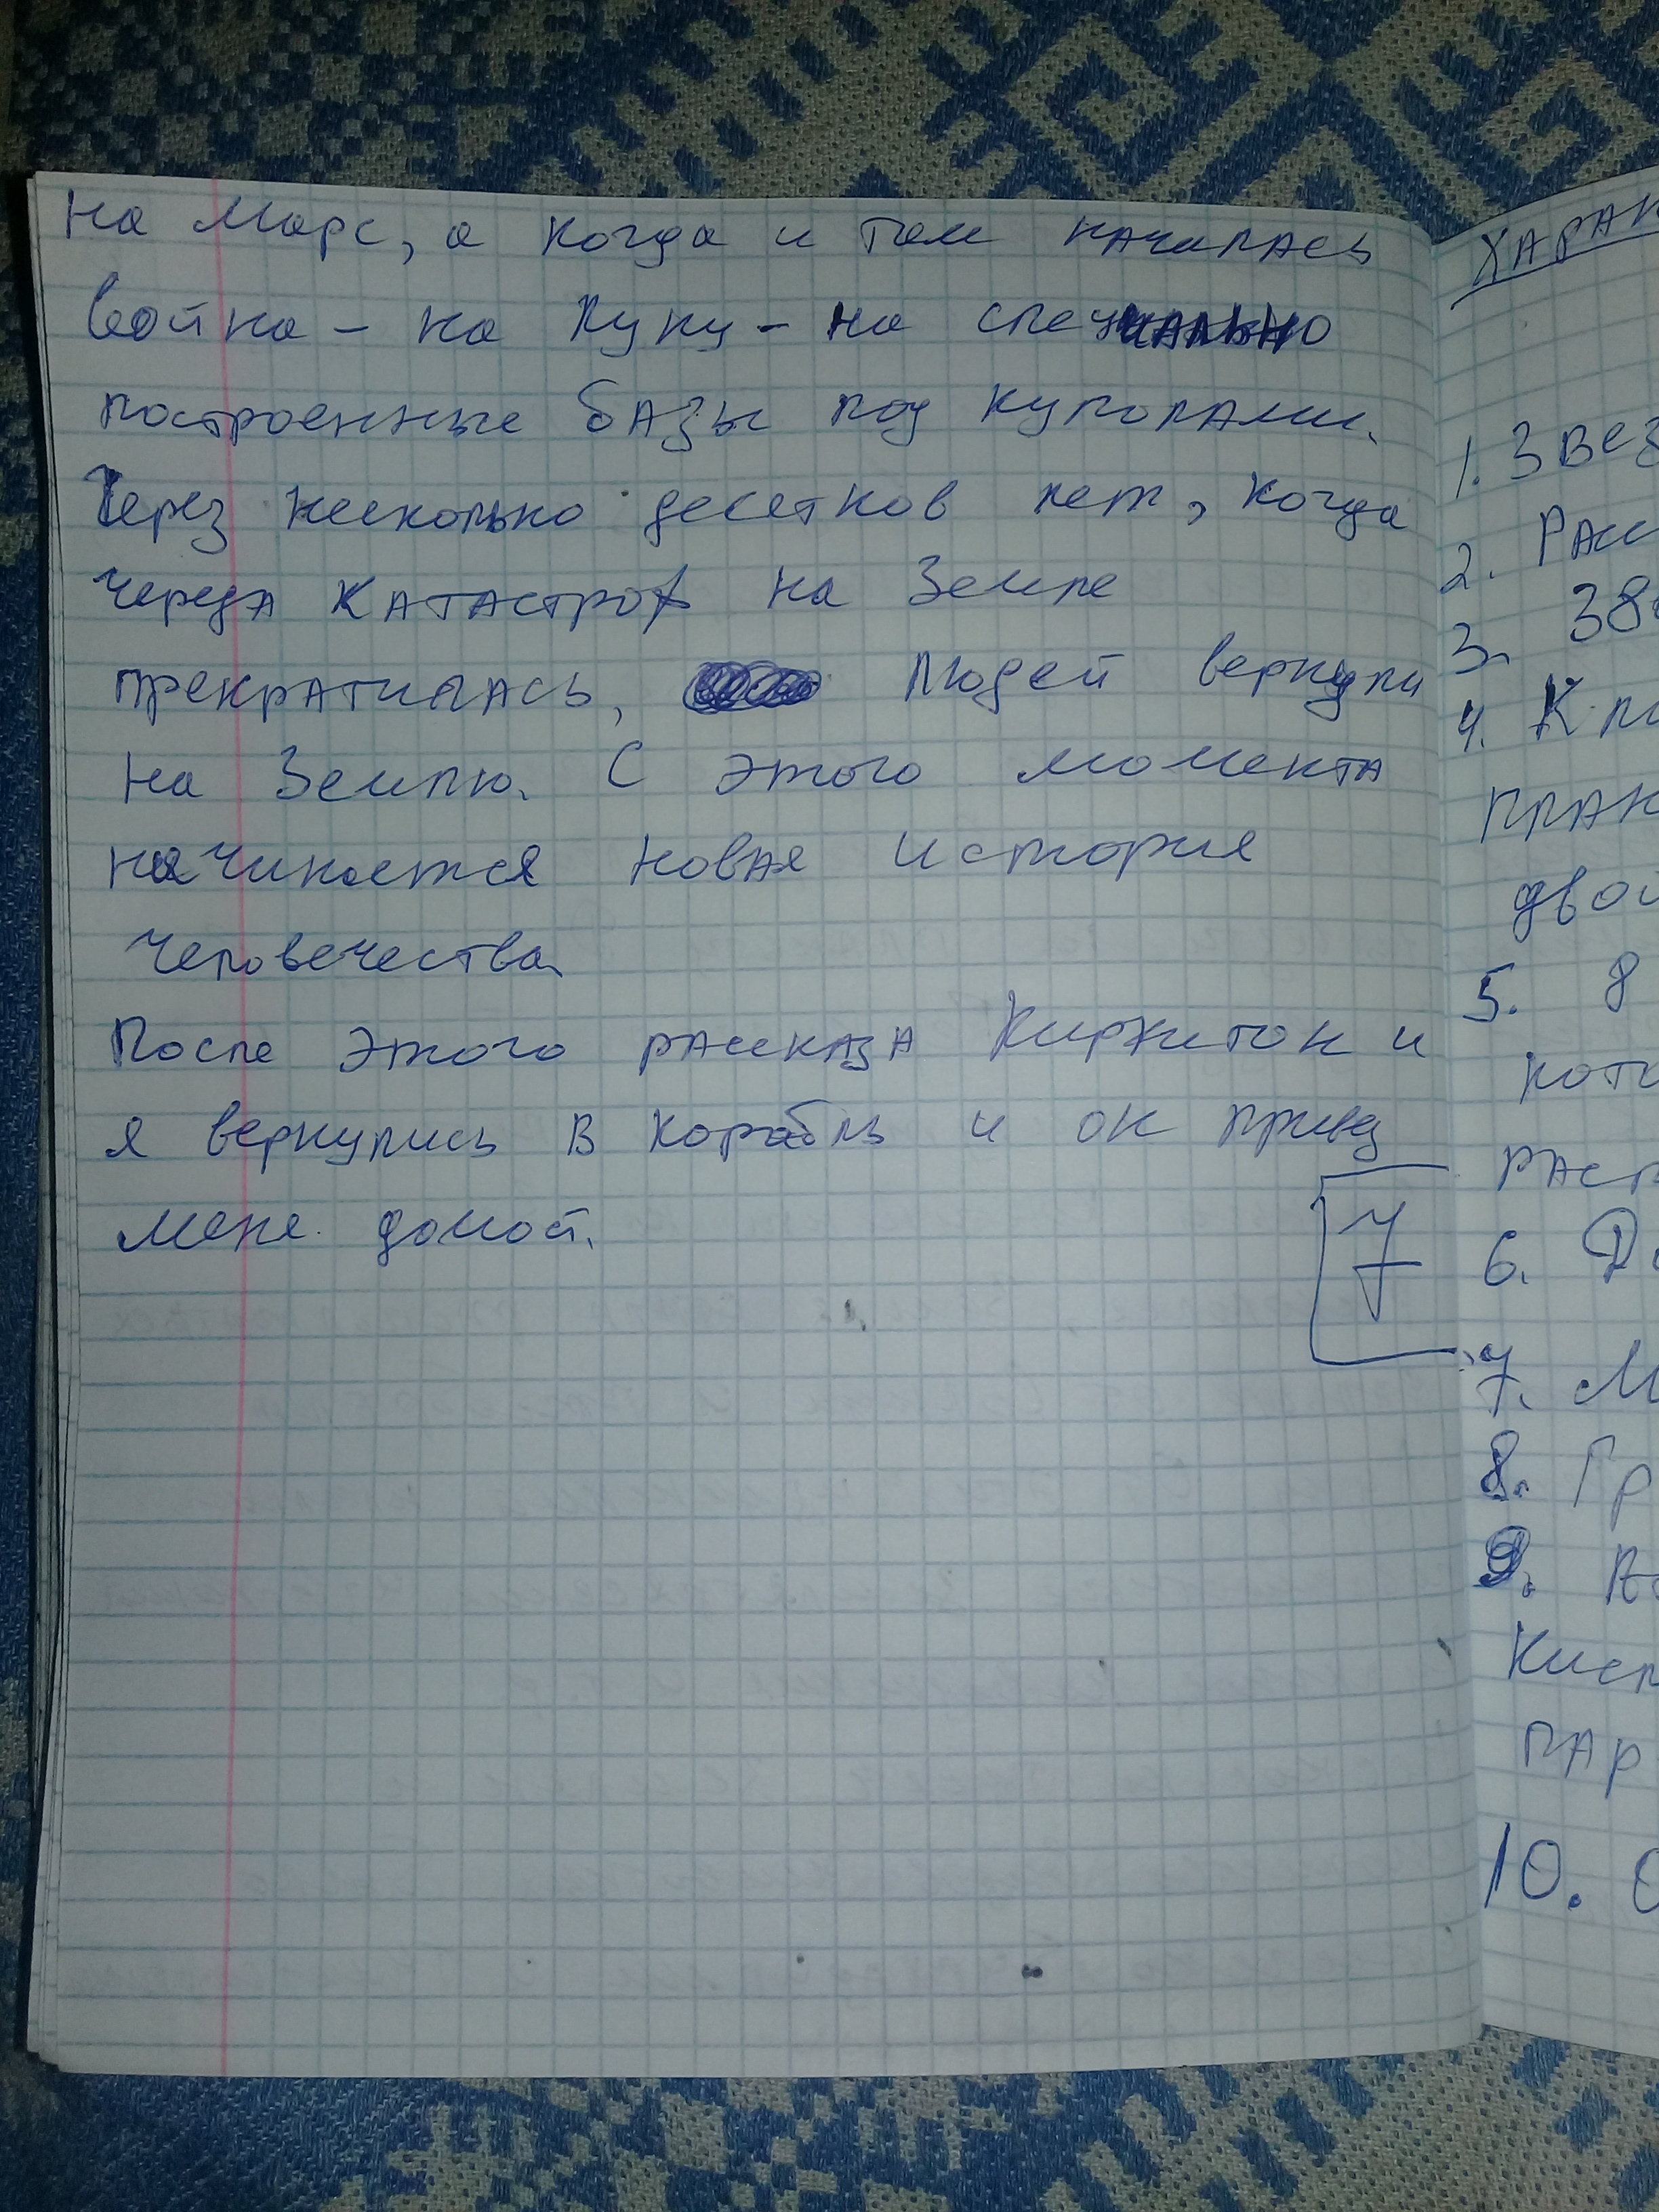 на Марс, а когда и там началась
война – на Луну – на специально
построенные базы под куполами.
Через несколько десетков лет, когда
череда катастроф на Земле
прекратилась, людей вернули
на Землю. С этого момента
начинается новая история
человечества.
После этого рассказа и
я вернулись в корабль и он привез
меня домой.
7
ХАРАК
1. Звез
2. Расс
3. 38
4. Кла
план
двой
5. 8
кото
расп
6. Д
7. М
8. Гр
9.
кисл
пар
10. О